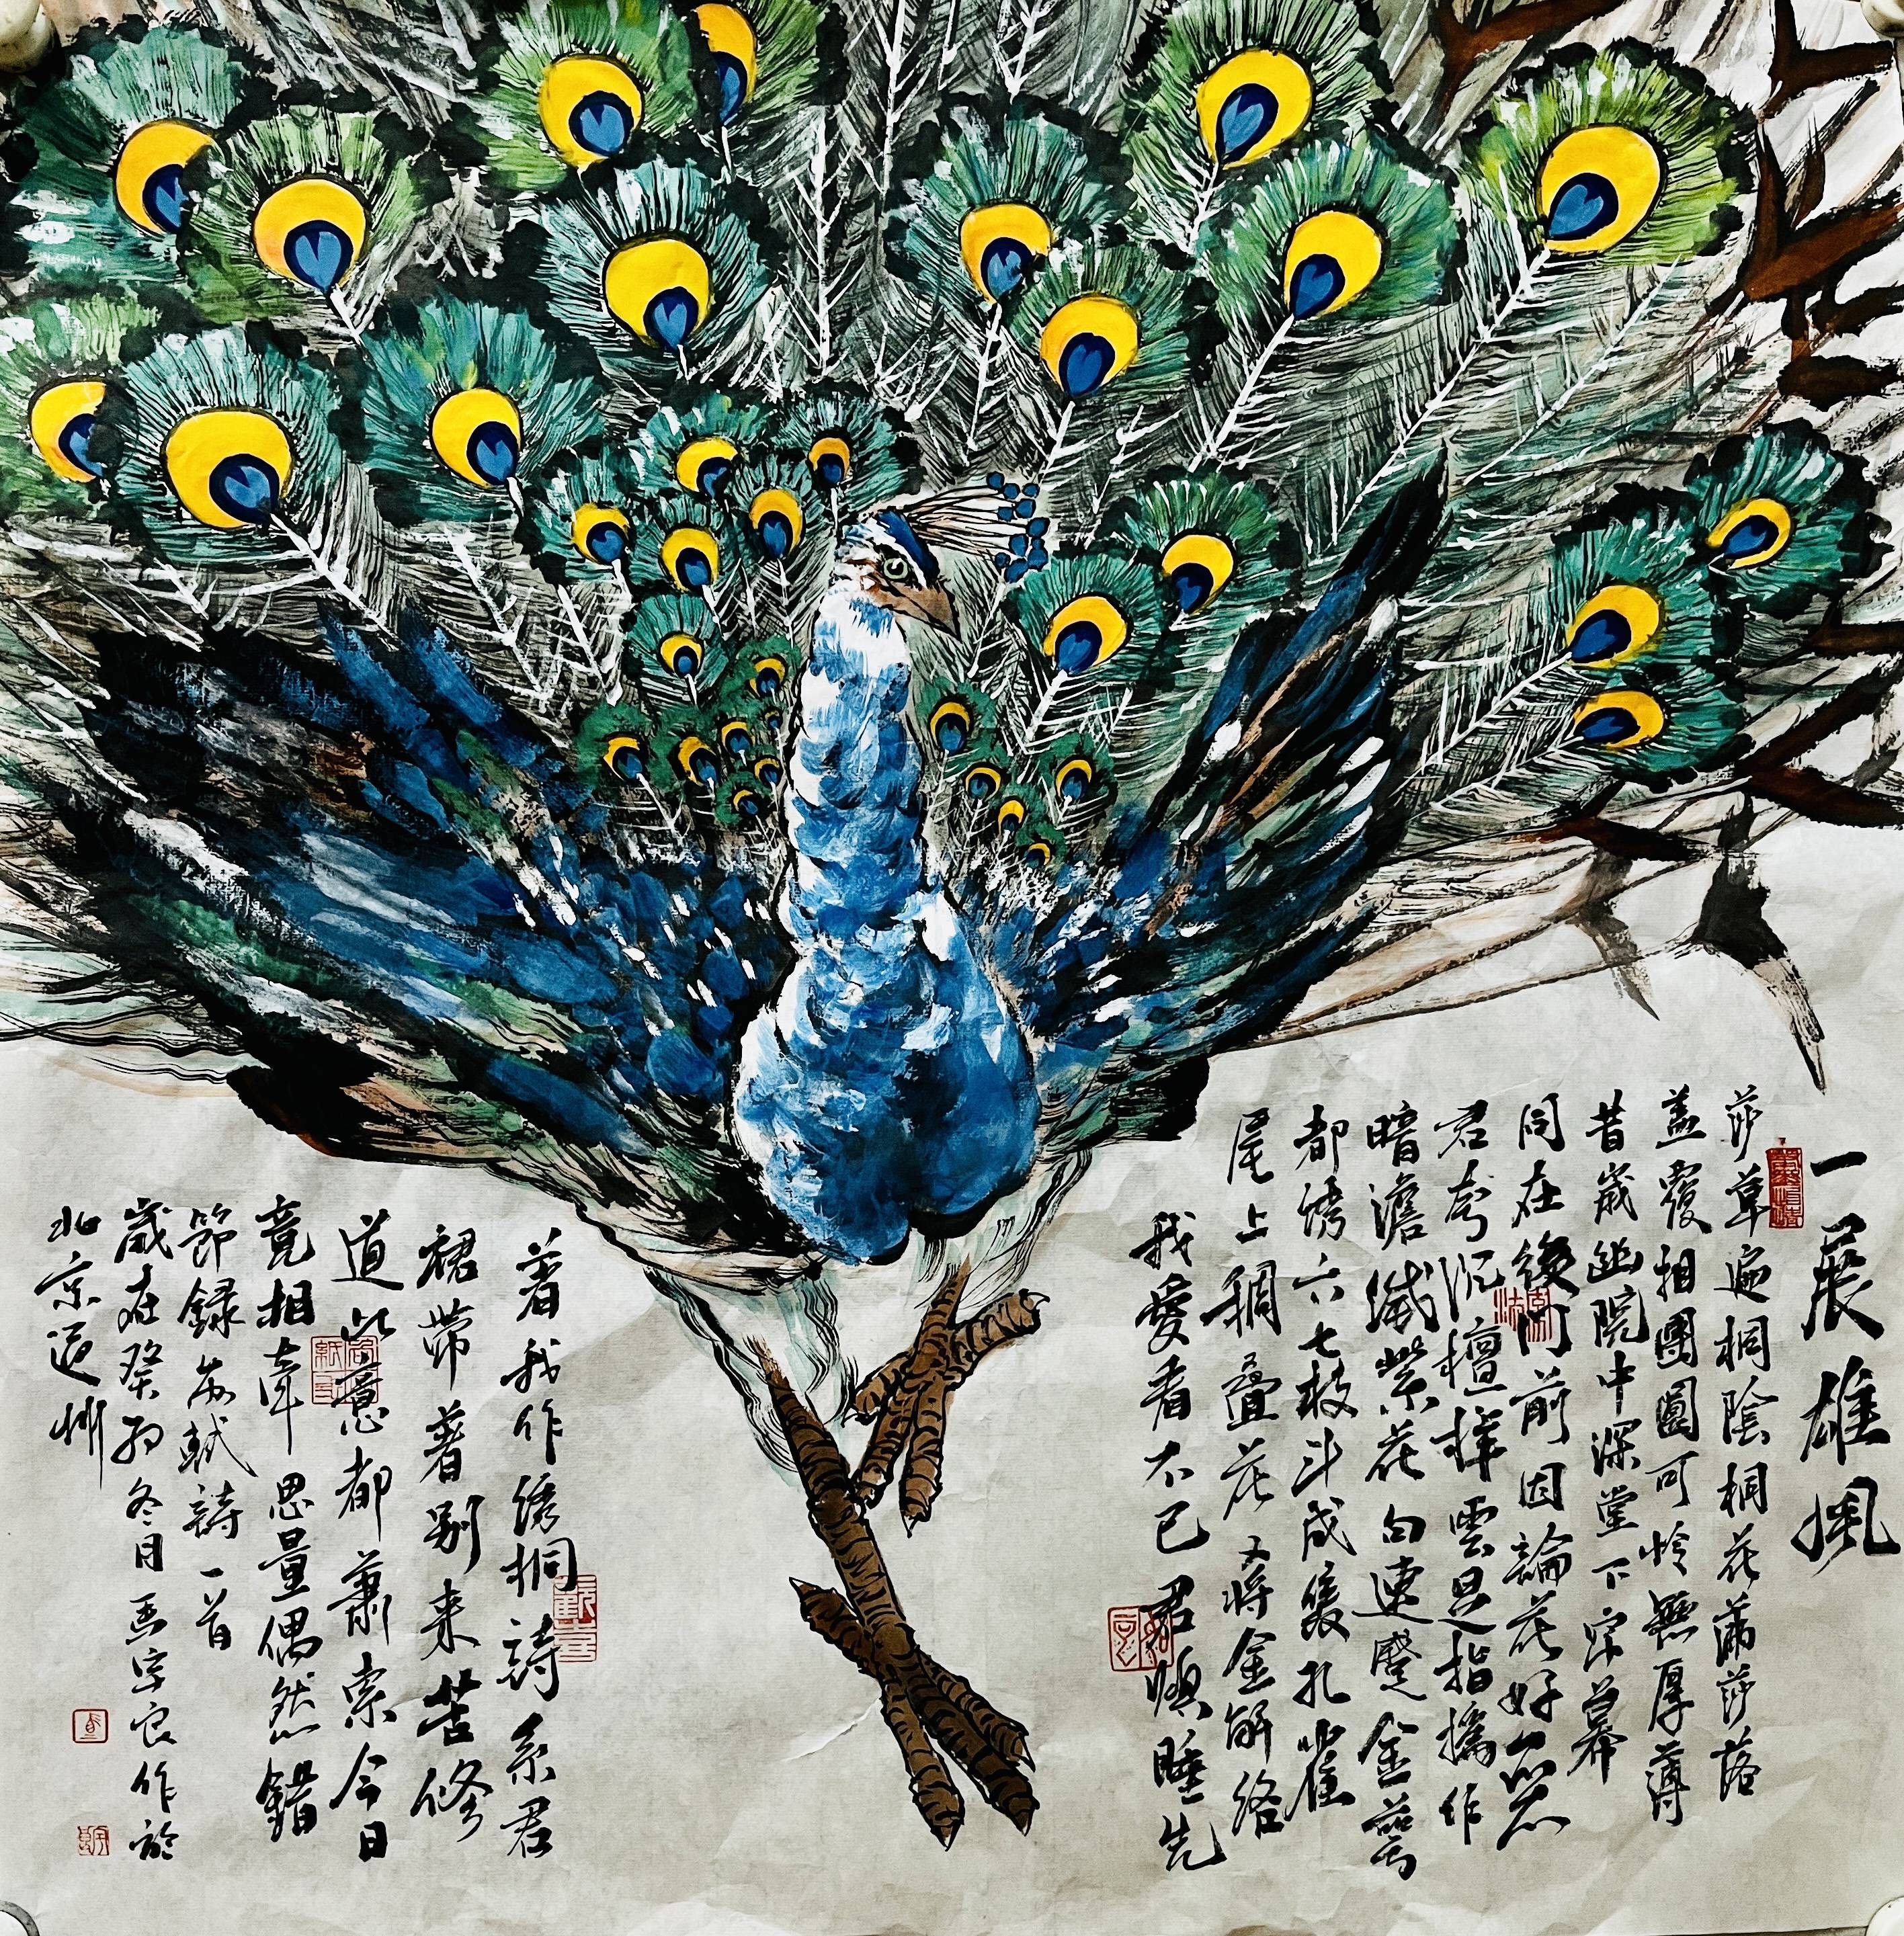 一展雄風
莎草遍桐陰桐花滿莎落
盖覆相團圓可怜無厚薄
昔歲幽院中深堂下帘幕
同在後门前因論花好惡
君夸沉檀樣雲是指撝作
暗澹滅紫花句連蹙金萼
都绣六七枝斗成雙孔雀
尾上稠疊花又將金解絡
我愛看不已君煩睡先
著我作绣桐詩系君
裙带著别来苦修
道此意都蕭索今日
竟相牽思量偶然錯
節録苏軾詩一首
歲在癸卯冬月良作於
北京通州